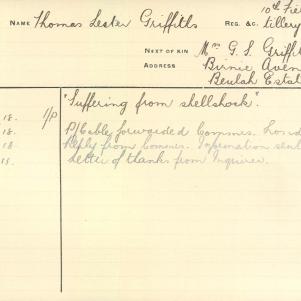 10th Fie
NAME Thomas Lester Griffiths REG. &C. tillery
NEXT OF KIN Mrs G. S. Griffit
ADDRESS Birnie Aven
Beulah Estat
"Suffering from shellshock".
18. I/P P/Cable forwarded Commrs. Lond
18. Reply from Commrs. Information sent
18. Letter of thanks from Inquirer.